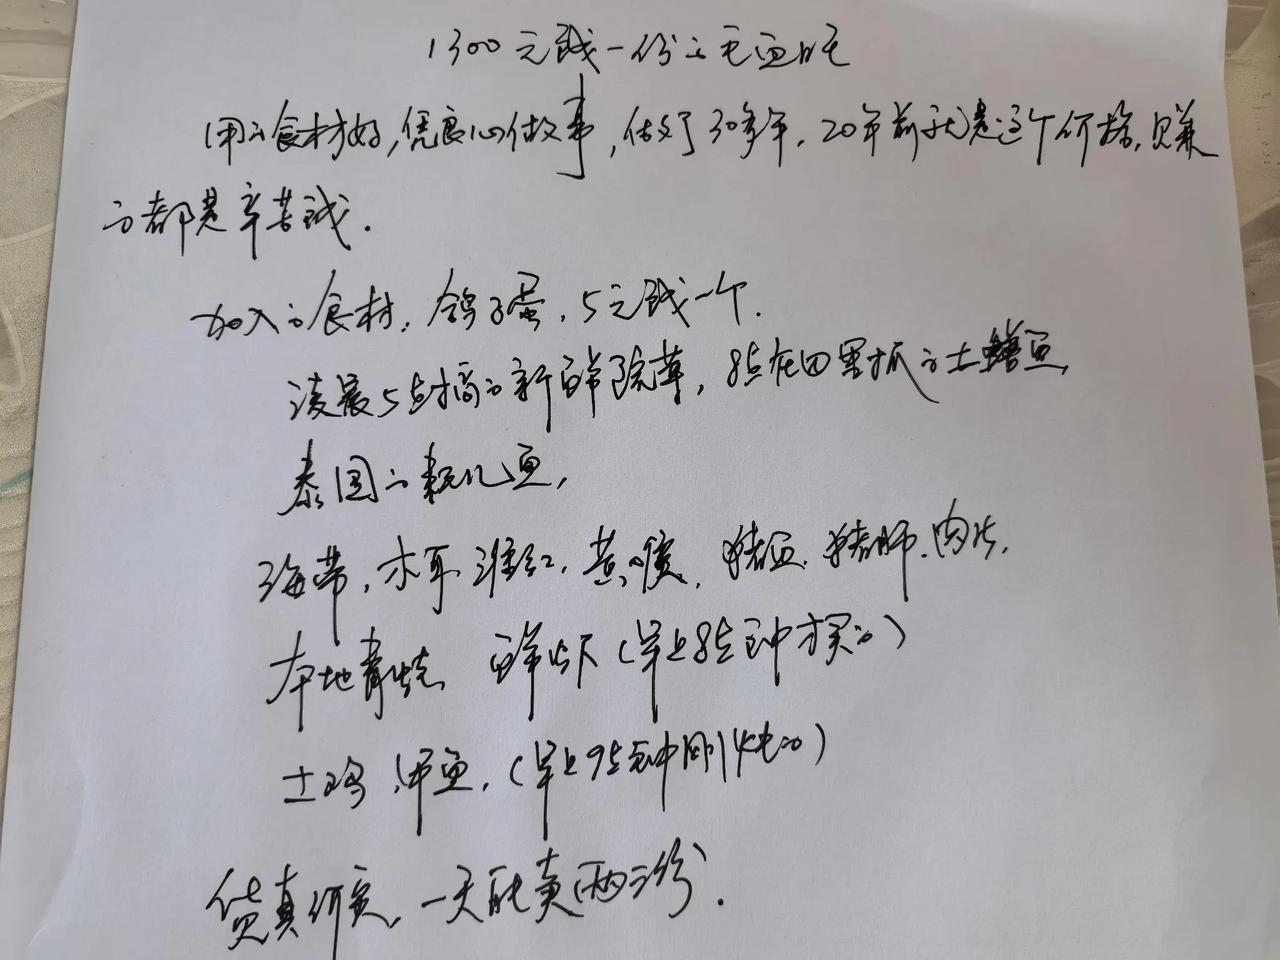 1300元钱一份的毛血旺
用的食材好,凭良心做事,做了30多年,20年前就是这个价格,赚
的都是辛苦钱.
加入的食材,鸽子蛋,5元钱一个.
凌晨5点摘的新鲜院茸,8点在田里抓的土鳝鱼,
泰国的耗儿鱼,
海带,木耳、潍红,黄喉,猪血、猪肺、肉片,
本地青笋 鲜虾(早上8点钟才买的)
土鸡,甲鱼,(早上9点钟刚炖的)
货真价实,一天能卖两三份.